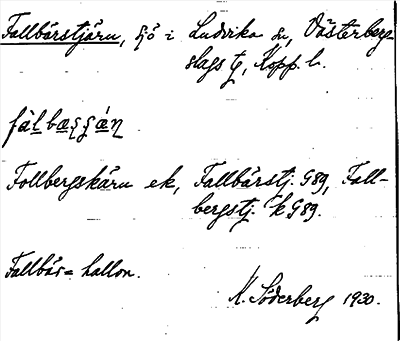 Fallbärstjärn, sjö i Ludvika sn, Västerbergs-
slags tg, Kopp. l.
Follbergskärn ek, Fallbärstj. G89, Fall-
bergstj. Tk G89.
Fallbär = hallon.
K. Söderberg 1930.